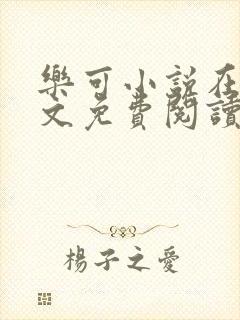 樂可小說在
文免費閱讀
楊子之愛